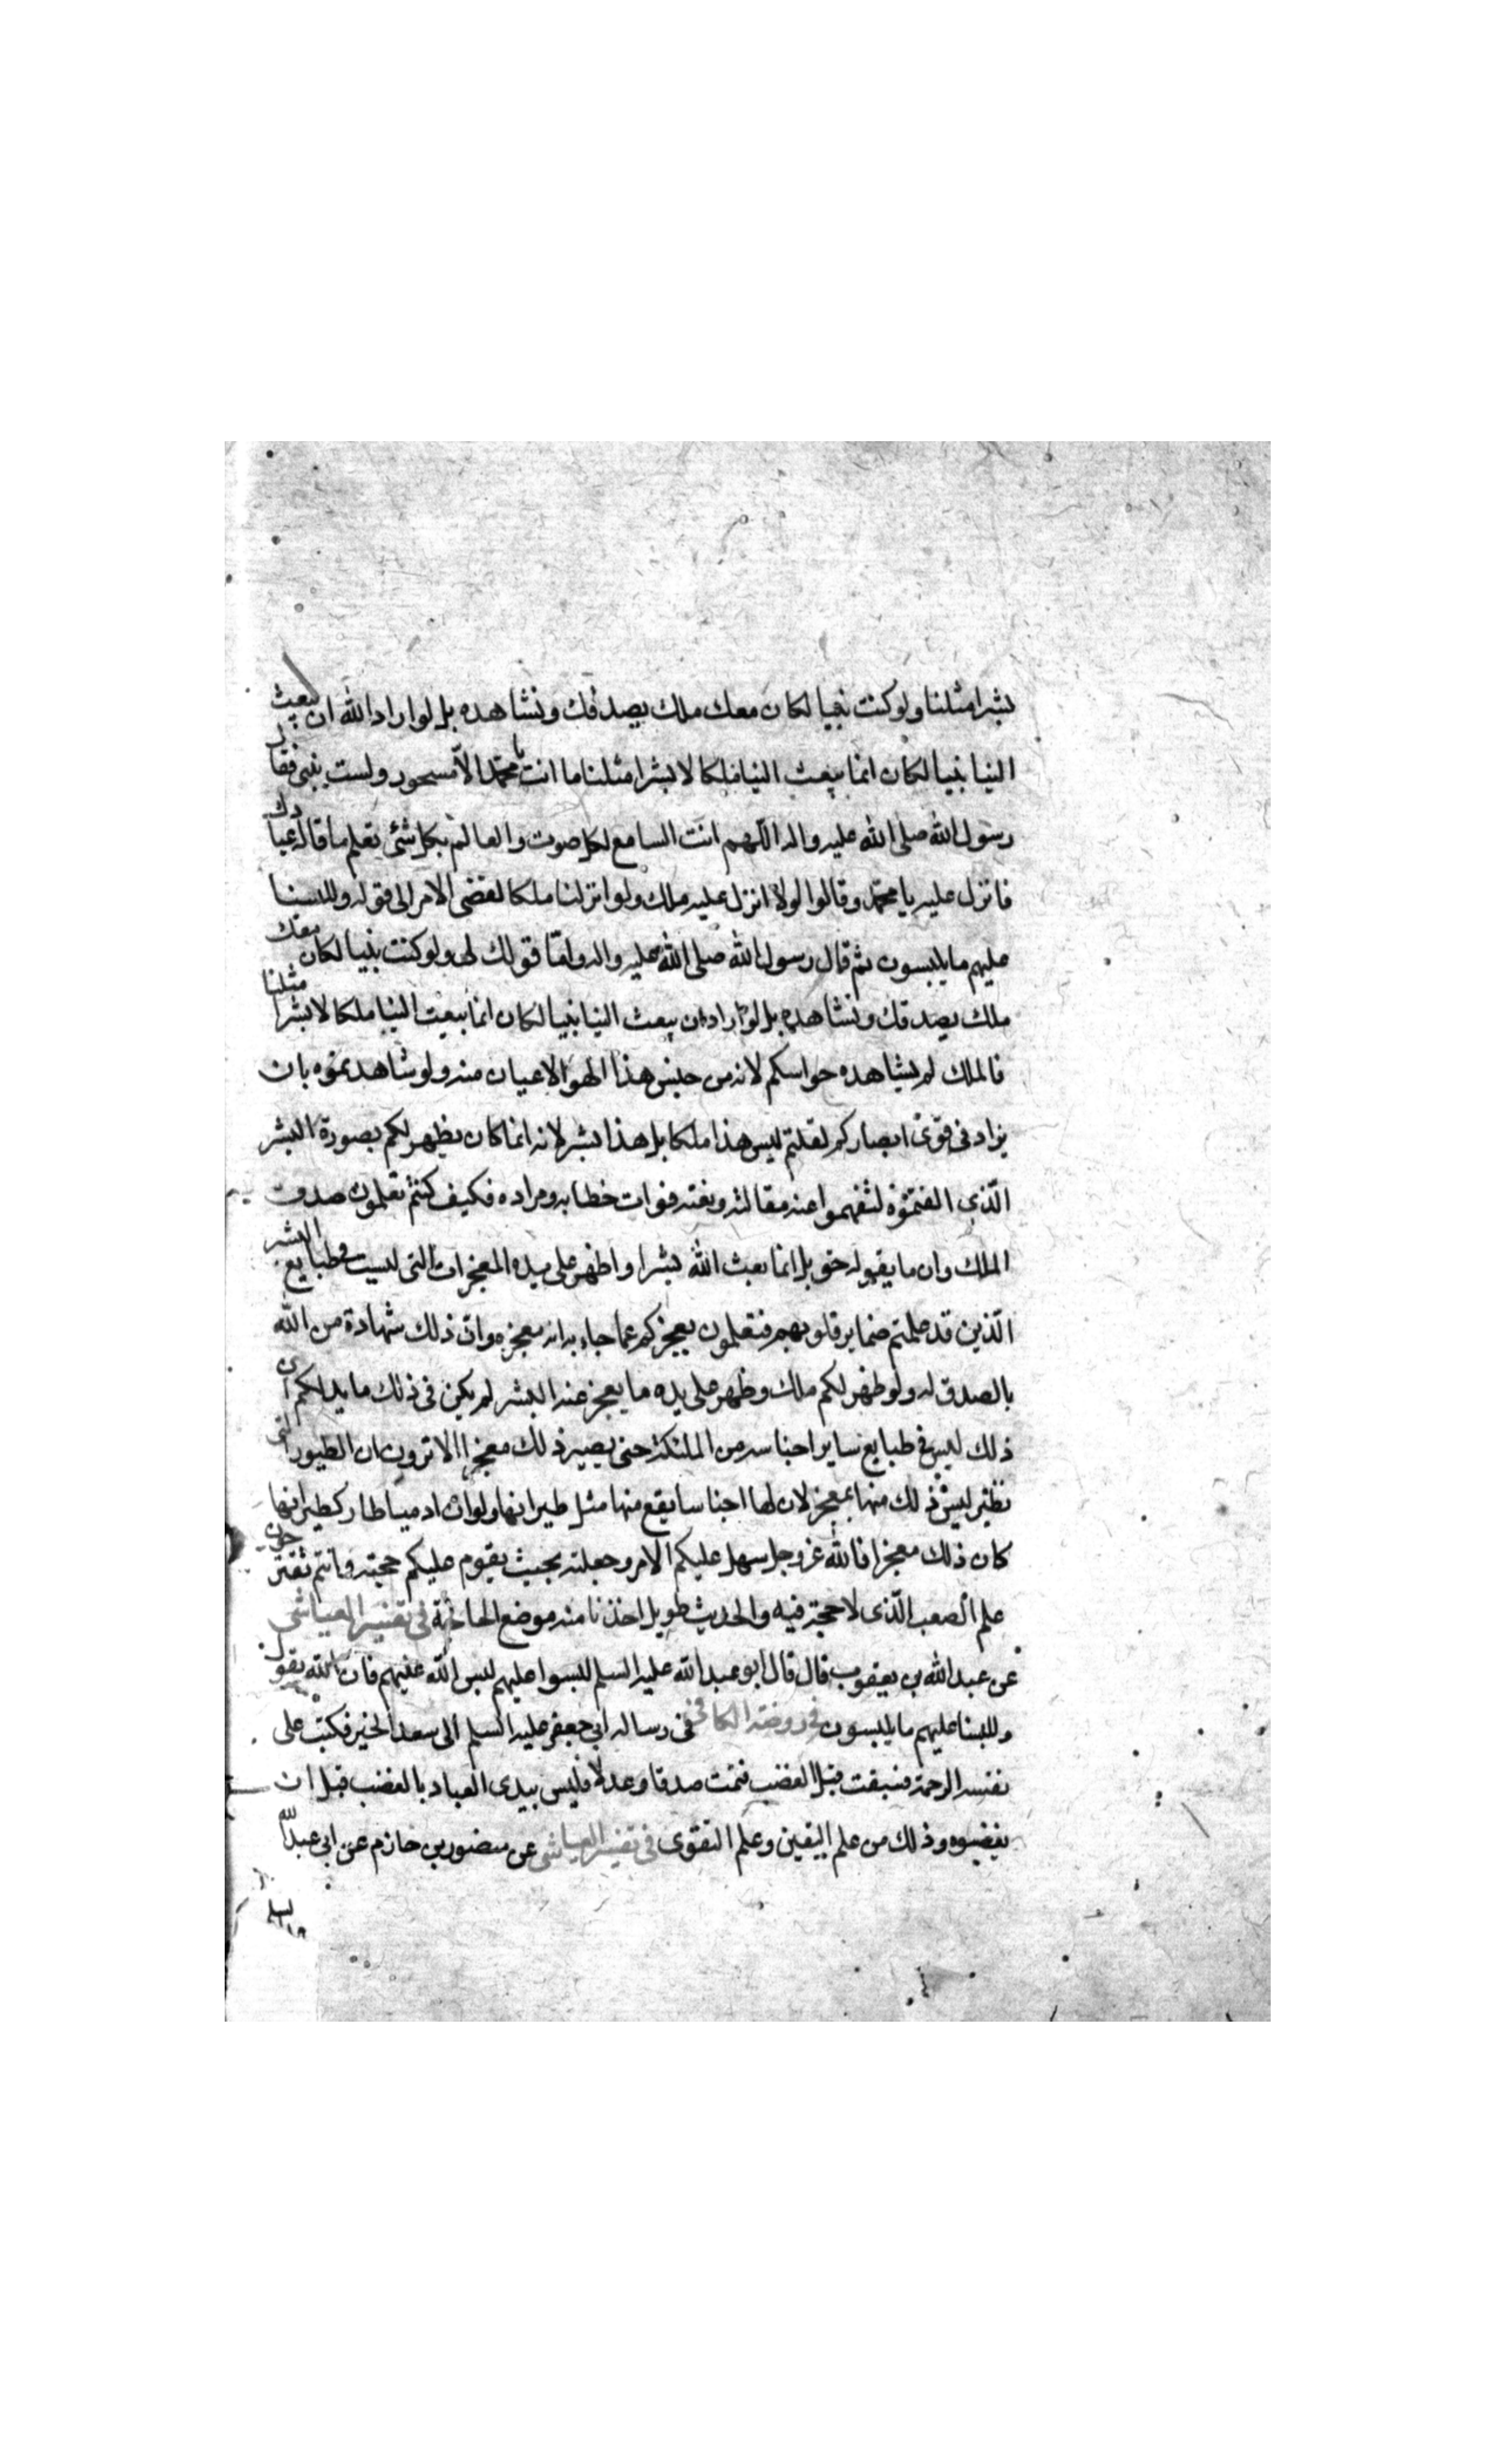 بشرا مثلنا ولو كنت نبيا لكان معك ملك يصدقك ونشاهده بل لو اراد الله ان يبعث
الينا نبيا لكان انما يبعث الينا ملكا لا بشرا مثلنا ما انت يا محمد الا مسحور ولست بنبى فقال
رسول الله صلى الله عليه واله اللهم انت السامع لكل صوت والعالم بكل شئ تعلم ما قاله عبادك
فانزل عليه يا محمد وقالوا لولا انزل عليه ملك ولو انزلنا ملكا لقضى الامر الى قوله وللبسنا
عليهم ما يلبسون ثم قال رسول الله صلى الله عليه واله واما قولك لى ولو كنت نبيا لكان معك
ملك يصدقك ونشاهده بل لو اراد ان يبعث الينا نبيا لكان انما يبعث الينا ملكا لا بشرا مثلنا
فالملك لم يشاهده حواسكم لانه من جنس هذا الهوا لا عيان منه ولو شاهدتموه بان
يزاد فى قوى ابصاركم لقلتم ليس هذا ملكا بل هذا بشر لانه انما كان يظهر لكم بصورة البشر
الذى الفتموه لتفهموا عنه مقالته و خطابه ومراده فكيف كنتم تعلمون صدق
الملك وان ما يقوله حق بل انما بعث الله بشرا واظهر على يده المعجزات التى ليست فى طبايع البشر
الذين قد علمتم ضماير قلوبهم فتعلمون بعجزكم عما جاء به انه معجزه وان ذلك شهادة من الله
بالصدق له ولو ظهر لكم ملك وظهر على يده ما يعجز عنه البشر لم يكن فى ذلك ما يدلكم ان
ذلك ليس فى طبايع ساير اجناسه من الملئكة حتى يصير ذلك معجزا الا ترون ان الطيور التى
تطير ليس ذلك منها بمعجز لان لها اجناسا يقع منها مثل طيرانها ولو ان ادميا طار كطيرانها
كان ذلك معجزا فالله عز وجل سهل عليكم الامر وجعله بحيث يقوم عليكم حجته وانتم تقترحون
علم الصعب الذى لا حجة فيه والحديث طويل اخذنا منه موضع الحاجة فى تفسير العياشى
عن عبد الله بن يعقوب قال قال ابو عبد الله عليه السلم لبسوا عليهم لبس الله عليهم فان الله يقول
وللبسنا عليهم ما يلبسون فى روضة الكافى فى رسالة ابى جعفر عليه السلم الى سعد الخير فكتب على
نفسه الرحمة فسبقت قبل الغضب فتمت صدقا وعدلا فليس يبتدى العباد بالغضب قبل ان
يغضبوه وذلك من علم اليقين وعلم التقوى فى تفسير العياشى عن منصور بن حازم عن ابى عبد الله